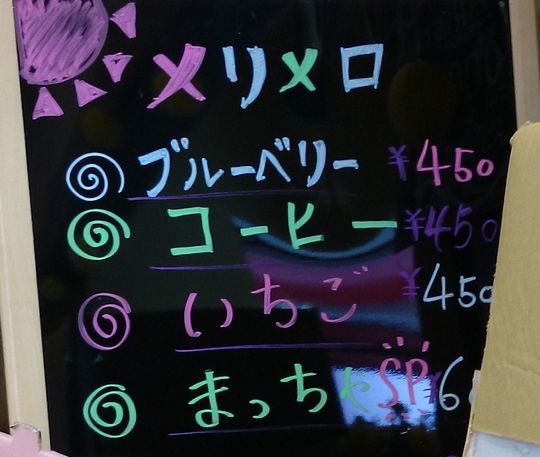 メリメロ
ブルーベリー ¥450
コーヒー ¥450
いちご ¥450
まっちゃ SP ¥6